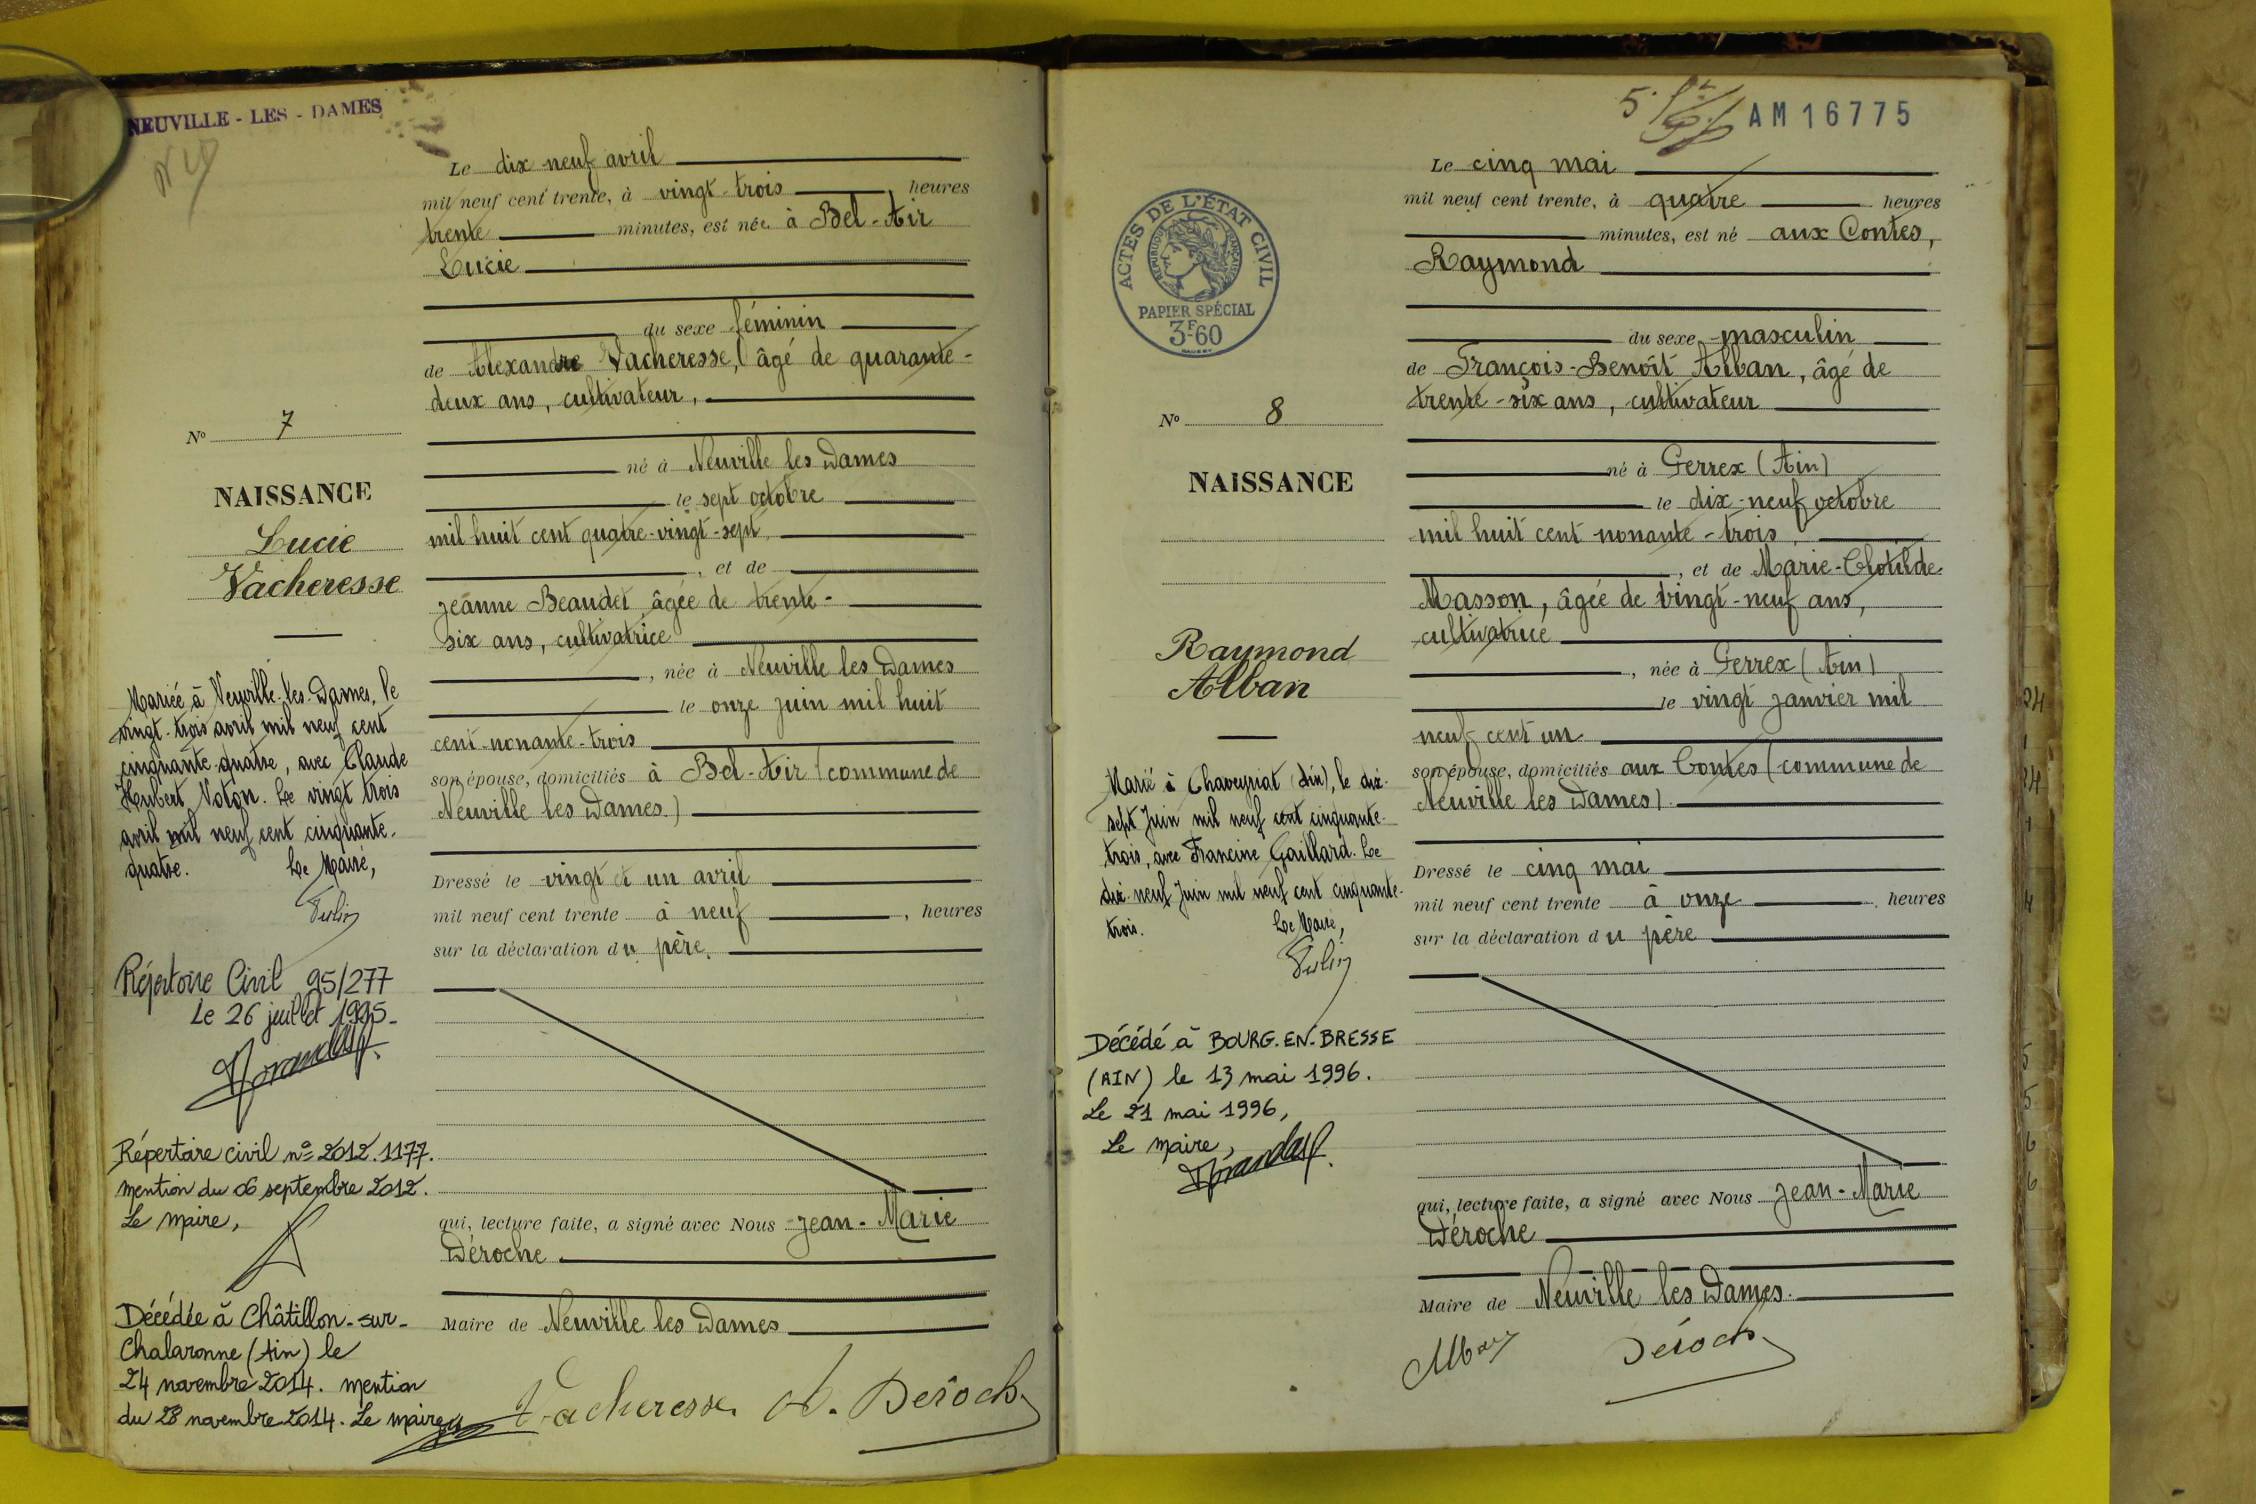 NEUVILLE - LES - DAMES
Le dix neuf avril
mil neuf cent trente, à vingt-trois heures
trente minutes, est née à Bel-Air
Lucie
du sexe féminin
de Alexandre Vacheresse, âgé de quarante-
deux ans, cultivateur,
né à Neuville les Dames
le sept octobre
mil huit cent quatre-vingt-sept
, et de
Jeanne Beaudet âgée de trente-
six ans, cultivatrice
, née à Neuville les Dames
le onze juin mil huit
cent-nonante-trois
son épouse, domiciliés à Bel-Air (commune de
Neuville les Dames.)
Dressé le vingt et un avril
mil neuf cent trente à neuf , heures
sur la déclaration du père.
qui, lecture faite, a signé avec Nous Jean-Marie
Déroche
Maire de Neuville les Dames
Vacheresse Déroche
No 7
NAISSANCE
Lucie
Vacheresse
Mariée à Neuville-les-Dames, le
vingt-trois avril mil neuf cent
cinquante-quatre, avec Claude
Hubert Noton. Le vingt trois
avril mil neuf cent cinquante-
quatre. Le Maire,
Répertoire Civil 95/277
Le 26 juillet 1995-
Répertoire civil n° 2012.1177.
mention du 06 septembre 2012.
Le maire,
Décédée à Châtillon-sur-
Chalaronne (Ain) le
24 novembre 2014. mention
du 28 novembre 2014. Le maire
5.
AM16775
ACTES DE L'ÉTAT CIVIL
RÉPUBLIQUE FRANÇAISE
PAPIER SPÉCIAL
3F60
Le cinq mai
mil neuf cent trente, à quatre heures
minutes, est né aux Contes,
Raymond
du sexe masculin
de François-Benoît Alban, âgé de
trente-six ans, cultivateur
né à Perrex (Ain)
le dix-neuf octobre
mil huit cent nonante-trois
, et de Marie-Clotilde
Masson, âgée de vingt-neuf ans,
cultivatrice
, née à Perrex (Ain)
le vingt janvier mil
neuf cent un
son épouse, domiciliés aux Contes (commune de
Neuville les Dames)
Dressé le cinq mai
mil neuf cent trente à onze heures
sur la déclaration du père
qui, lecture faite, a signé avec Nous Jean-Marie
Déroche
Maire de Neuville les Dames.
Alban Déroche
No 8
NAISSANCE
Raymond
Alban
Marié à Chaveyriat (Ain), le dix-
sept Juin mil neuf cent cinquante-
trois, avec Francine Gaillard. Le
dix-neuf Juin mil neuf cent cinquante-
trois. Le Maire,
Décédé à BOURG-EN-BRESSE
(AIN) le 13 mai 1996.
Le 21 mai 1996,
Le maire,